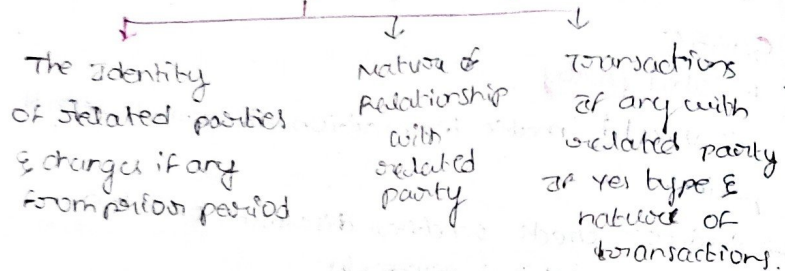 The Identity
of related parties
& changes if any
from prior period
Nature of
Relationship
with
related
party
Transactions
If any with
related party
If yes type &
nature of
transactions.